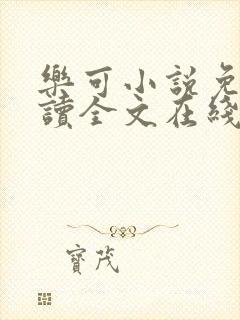 樂可小說免
讀全文在綫
寶茂